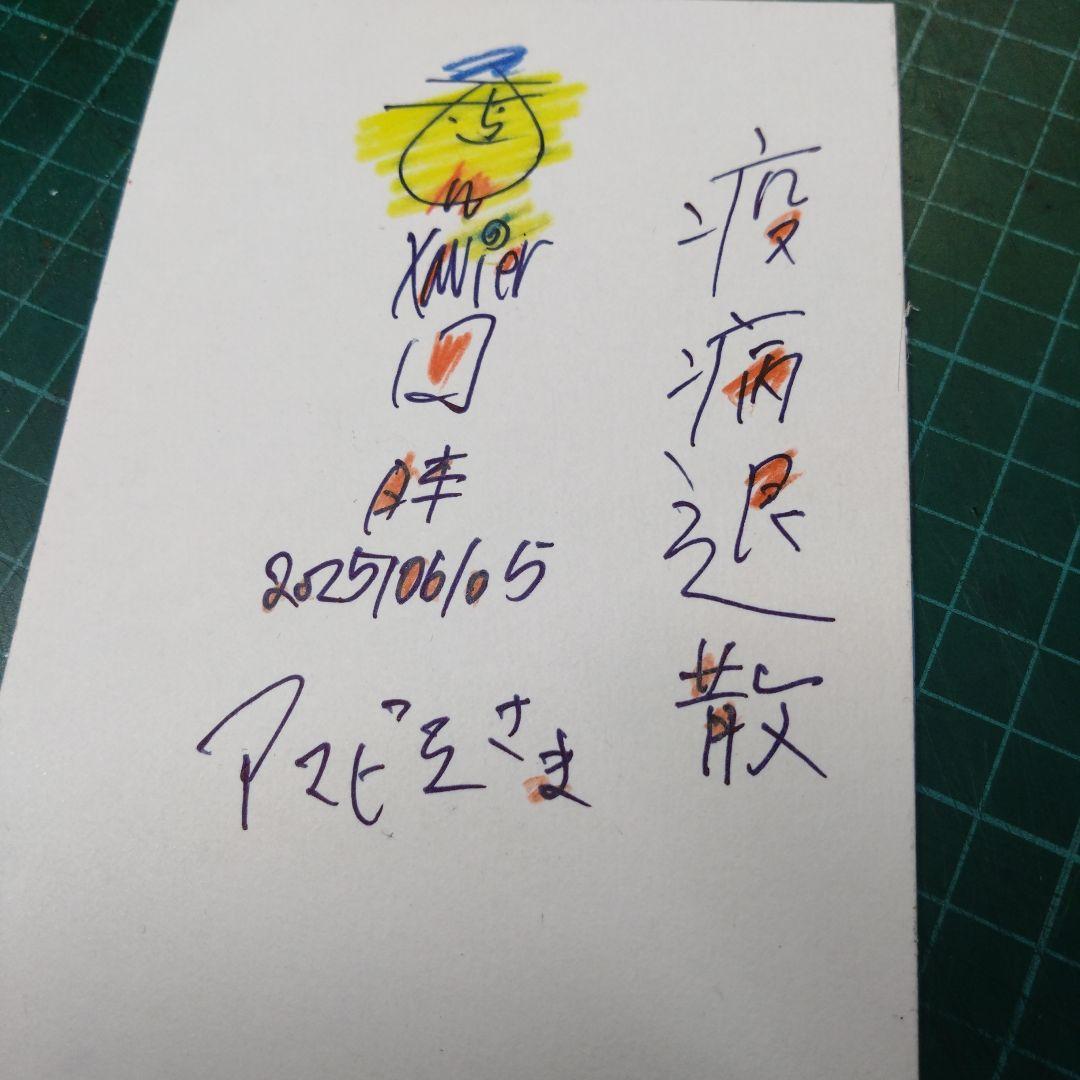 疫病退散
Xavier
回
胖
2025/06/05
アマビヱさま